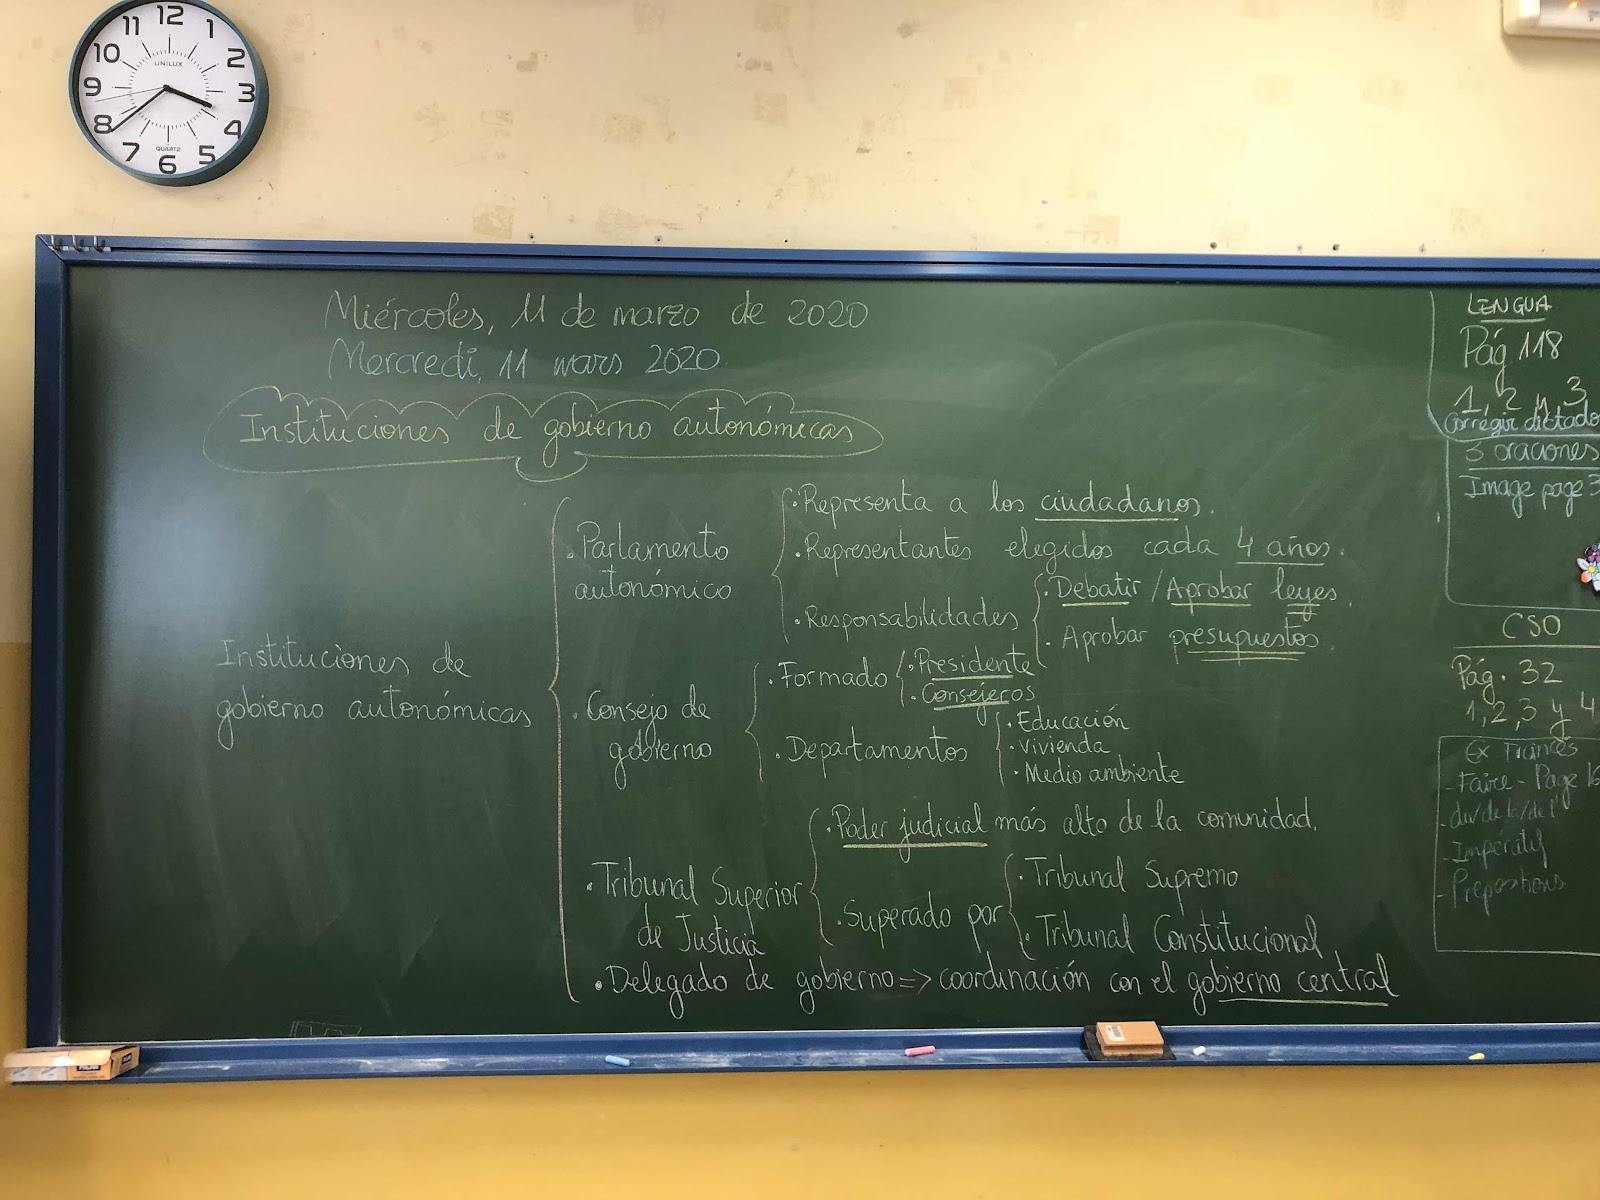 12
11
1
10
2
UNILUX
9
3
8
4
QUARTZ
7
5
6
Miércoles, 11 de marzo de 2020
Mercredi, 11 mars 2020
Instituciones de gobierno autonómicas
Instituciones de
gobierno autonómicas
· Parlamento
autonómico
· Representa a los ciudadanos.
· Representantes elegidos cada 4 años.
· Responsabilidades
· Debatir / Aprobar leyes.
· Aprobar presupuestos.
· Consejo de
gobierno
· Formado
· Presidente
· Consejeros
· Departamentos
· Educación
· Vivienda
· Medio ambiente
· Tribunal Superior
de Justicia
· Poder judicial más alto de la comunidad.
· Superado por
· Tribunal Supremo
· Tribunal Constitucional
· Delegado de gobierno => coordinación con el gobierno central
LENGUA
Pág 118
1, 2 y 3
Corrégir dictado
3 oraciones
Image page 3
CSO
Pág. 32
1, 2, 3 y 4
Ex Francés
- Faire - Page 16
- du/de la/de l'
- Impératif
- Prepositions
MILAN